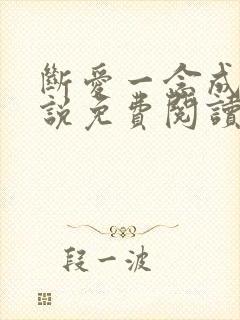 斷愛一念成
說免費閱讀
段一波